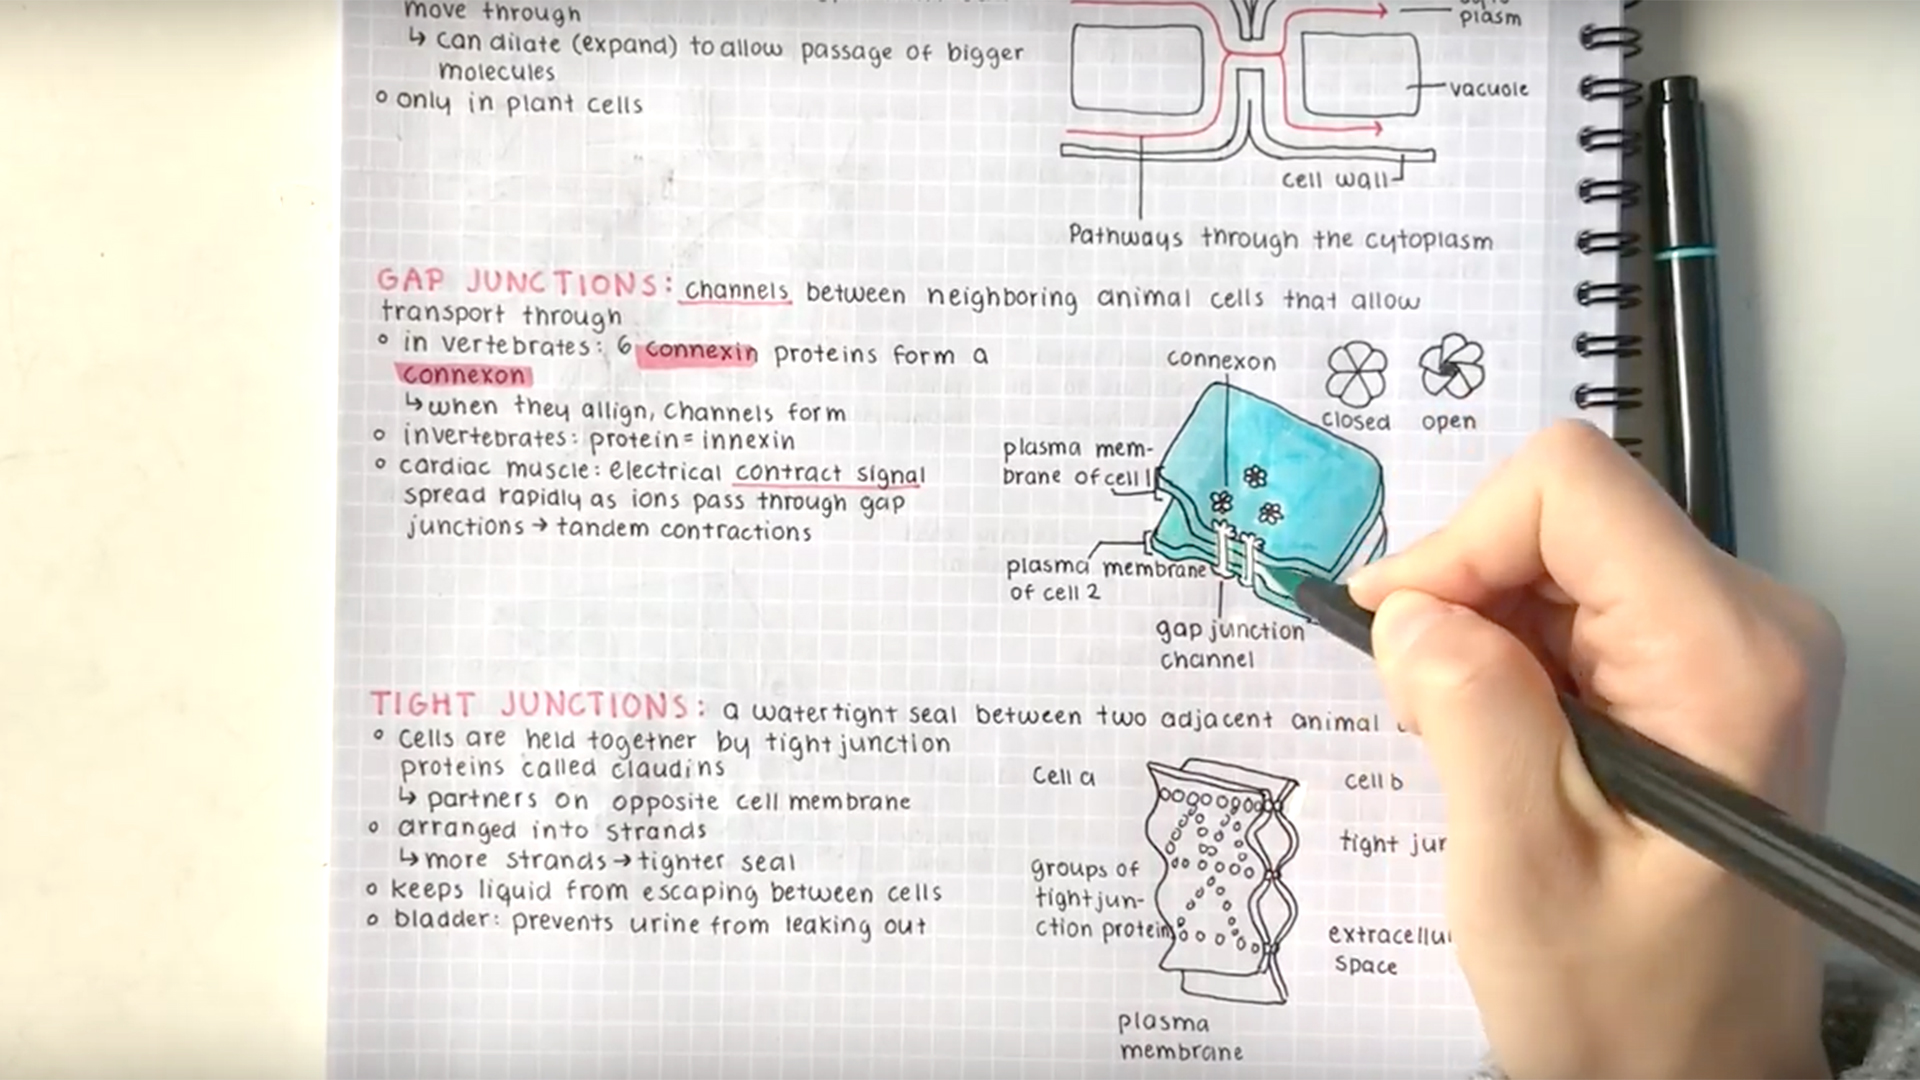 move through
↳ can dilate (expand) to allow passage of bigger
molecules
° only in plant cells
plasm
vacuole
cell wall
Pathways through the cytoplasm
GAP JUNCTIONS: channels between neighboring animal cells that allow
transport through
° in vertebrates: 6 connexin proteins form a
connexon
↳ when they allign, channels form
° invertebrates: protein = innexin
° cardiac muscle: electrical contract signal
spread rapidly as ions pass through gap
junctions → tandem contractions
connexon
closed
open
plasma mem-
brane of cell 1
plasma membrane
of cell 2
gap junction
channel
TIGHT JUNCTIONS: a watertight seal between two adjacent animal
° cells are held together by tight junction
proteins called claudins
↳ partners on opposite cell membrane
° arranged into strands
↳ more strands → tighter seal
° keeps liquid from escaping between cells
° bladder: prevents urine from leaking out
cell a
cell b
tight jun
groups of
tight jun-
ction protein
extracellu
space
plasma
membrane